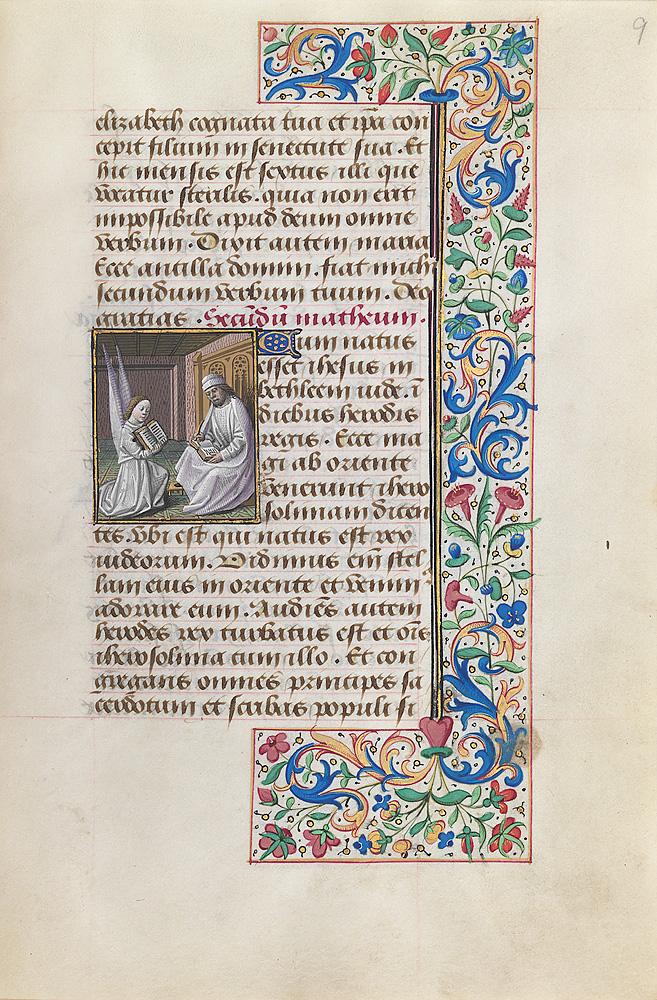 9
elizabeth cognata tua et ip̄a con
cepit filium in senectute sua. Et
hic mensis est sextus illi que
vocatur sterilis. quia non erit
impossibile apud deum omne
verbum. Dixit autem maria
Ecce ancilla domini. fiat michi
secundum verbum tuum. Deo
gratias. Secūdū matheum.
Cum natus
esset ihesus in
bethleem iude. ī
diebus herodis
regis. Ecce ma
gi ab oriente
venerunt ihero
solimam dicen
tes. vbi est qui natus est rex
iudeorum. Vidimus em̄ stel
lam eius in oriente et venim
adorare eum. Audiēs autem
herodes rex turbatus est et oīs
iherosolima cum illo. Et con
gregans omnes principes sa
cerdotum et scribas populi sc